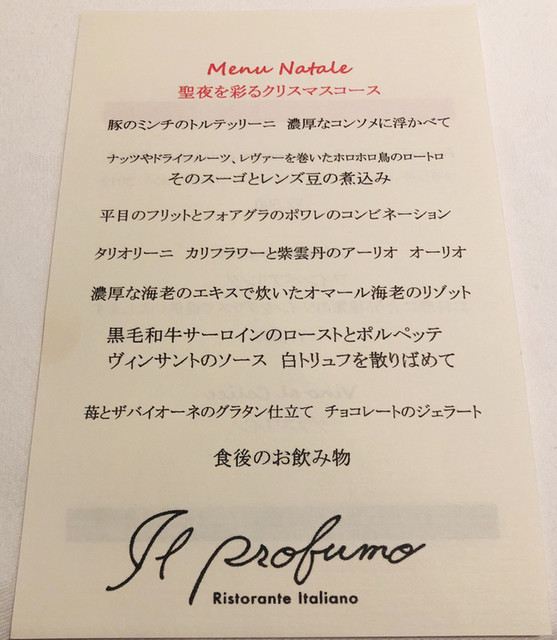 Menu Natale
聖夜を彩るクリスマスコース
豚のミンチのトルテッリーニ　濃厚なコンソメに浮かべて
ナッツやドライフルーツ、レヴァーを巻いたホロホロ鳥のロートロ
そのスーゴとレンズ豆の煮込み
平目のフリットとフォアグラのポワレのコンビネーション
タリオリーニ　カリフラワーと紫雲丹のアーリオ　オーリオ
濃厚な海老のエキスで炊いたオマール海老のリゾット
黒毛和牛サーロインのローストとポルペッテ
ヴィンサントのソース　白トリュフを散りばめて
苺とザバイオーネのグラタン仕立て　チョコレートのジェラート
食後のお飲み物
Il profumo
Ristorante Italiano